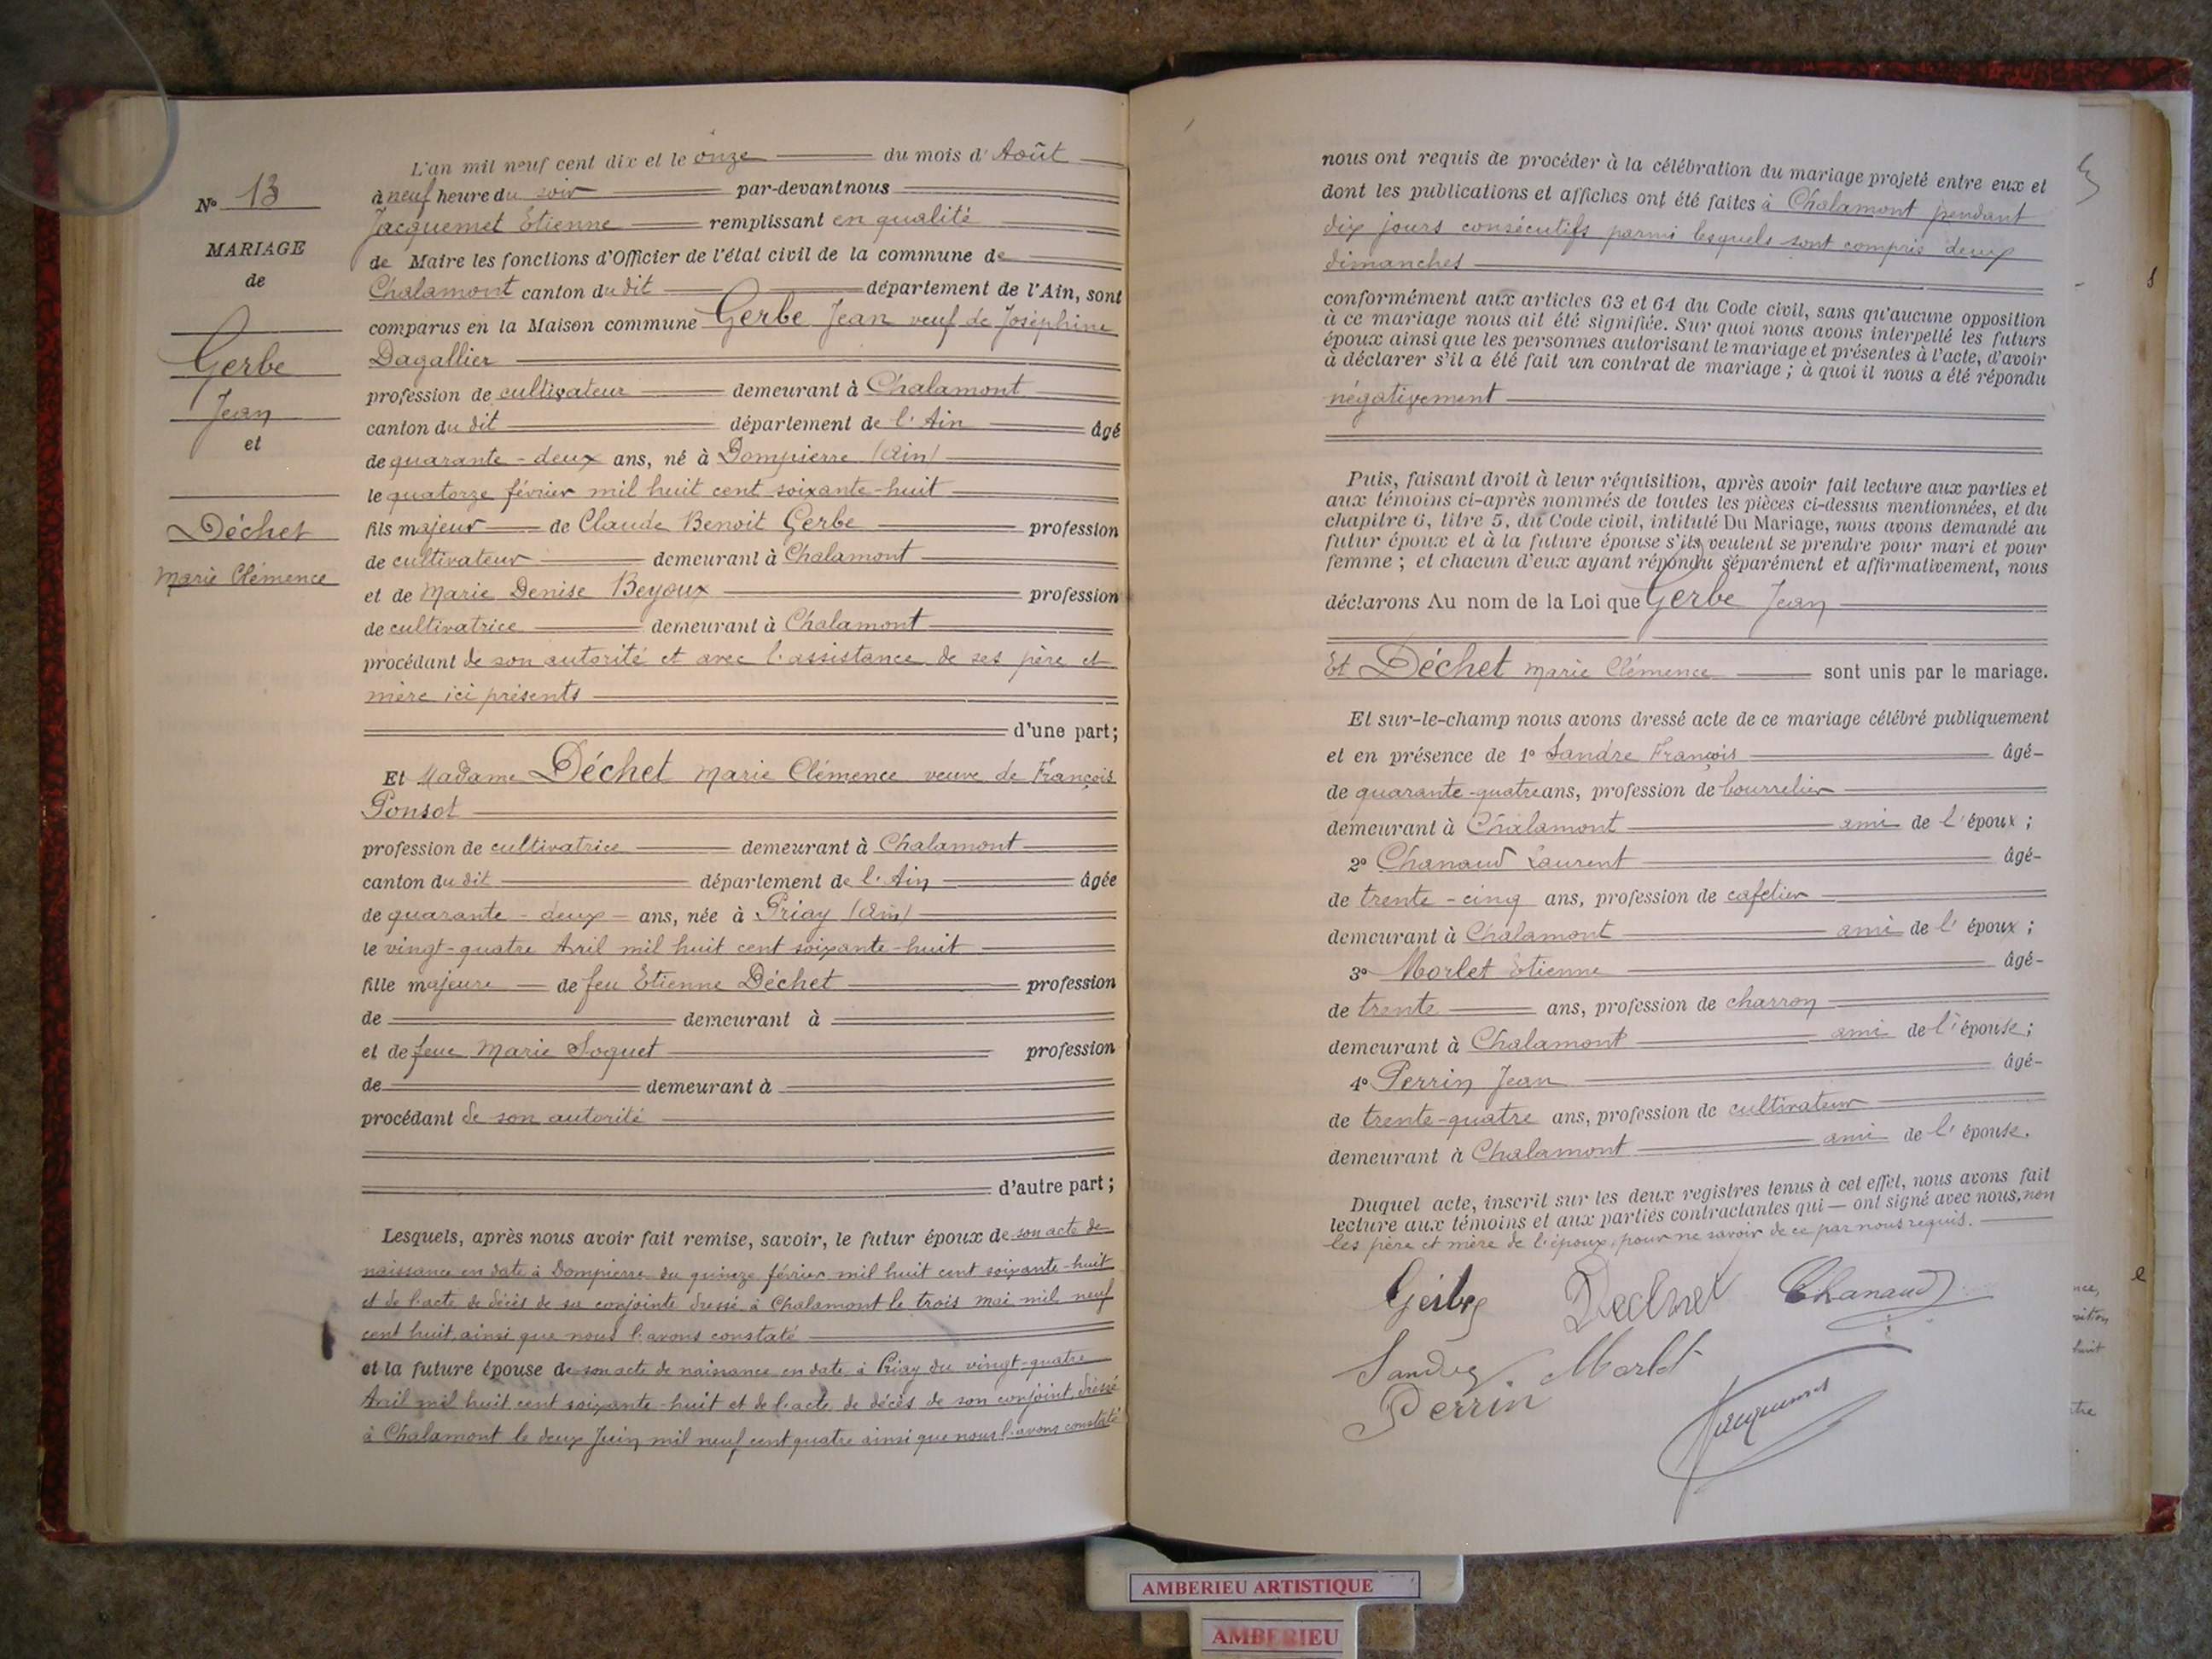 N° 13
MARIAGE
de
Gerbe
Jean
et
Déchet
Marie Clémence
L'an mil neuf cent dix et le onze du mois d'Août
à neuf heure du soir par-devant nous
Jacquemet Etienne remplissant en qualité
de Maire les fonctions d'Officier de l'état civil de la commune de
Chalamont canton du dit département de l'Ain, sont
comparus en la Maison commune Gerbe Jean veuf de Joséphine
Dagallier
profession de cultivateur demeurant à Chalamont
canton du dit département de l'Ain âgé
de quarante-deux ans, né à Dompierre (Ain)
le quatorze février mil huit cent soixante-huit
fils majeur de Claude Benoit Gerbe profession
de cultivateur demeurant à Chalamont
et de Marie Denise Beyoux profession
de cultivatrice demeurant à Chalamont
procédant de son autorité et avec l'assistance de ses père et
mère ici présents
d'une part;
Et Madame Déchet Marie Clémence veuve de François
Ponsot
profession de cultivatrice demeurant à Chalamont
canton du dit département de l'Ain âgée
de quarante-deux ans, née à Priay (Ain)
le vingt-quatre Avril mil huit cent soixante-huit
fille majeure de feu Etienne Déchet profession
de demeurant à
et de feue Marie Soquet profession
de demeurant à
procédant de son autorité
d'autre part;
Lesquels, après nous avoir fait remise, savoir, le futur époux de son acte de
naissance en date à Dompierre du quinze février mil huit cent soixante-huit
et de l'acte de décès de sa conjointe dressé à Chalamont le trois mai mil neuf
cent huit, ainsi que nous l'avons constaté
et la future épouse de son acte de naissance en date à Priay du vingt-quatre
Avril mil huit cent soixante-huit et de l'acte de décès de son conjoint, dressé
à Chalamont le deux Juin mil neuf cent quatre ainsi que nous l'avons constaté
nous ont requis de procéder à la célébration du mariage projeté entre eux et
dont les publications et affiches ont été faites à Chalamont pendant
dix jours consécutifs parmi lesquels sont compris deux
dimanches
conformément aux articles 63 et 64 du Code civil, sans qu'aucune opposition
à ce mariage nous ait été signifiée. Sur quoi nous avons interpellé les futurs
époux ainsi que les personnes autorisant le mariage et présentes à l'acte, d'avoir
à déclarer s'il a été fait un contrat de mariage; à quoi il nous a été répondu
négativement
Puis, faisant droit à leur réquisition, après avoir fait lecture aux parties et
aux témoins ci-après nommés de toutes les pièces ci-dessus mentionnées, et du
chapitre 6, titre 5, du Code civil, intitulé Du Mariage, nous avons demandé au
futur époux et à la future épouse s'ils veulent se prendre pour mari et pour
femme; et chacun d'eux ayant répondu séparément et affirmativement, nous
déclarons Au nom de la Loi que Gerbe Jean
Et Déchet Marie Clémence sont unis par le mariage.
Et sur-le-champ nous avons dressé acte de ce mariage célébré publiquement
et en présence de 1° Sandre François âgé-
de quarante-quatre ans, profession de bourrelier
demeurant à Chalamont ami de l'époux;
2° Chanaud Laurent âgé-
de trente-cinq ans, profession de cafetier
demeurant à Chalamont ami de l'époux;
3° Morlet Etienne âgé-
de trente ans, profession de charron
demeurant à Chalamont ami de l'épouse;
4° Perrin Jean âgé-
de trente-quatre ans, profession de cultivateur
demeurant à Chalamont ami de l'épouse.
Duquel acte, inscrit sur les deux registres tenus à cet effet, nous avons fait
lecture aux témoins et aux parties contractantes qui — ont signé avec nous, non
les père et mère de l'époux, pour ne savoir de ce par nous requis.
Gerbe Dechet Chanaud
Sandre Morlet
Perrin Jacquemet
AMBERIEU ARTISTIQUE
AMBERIEU